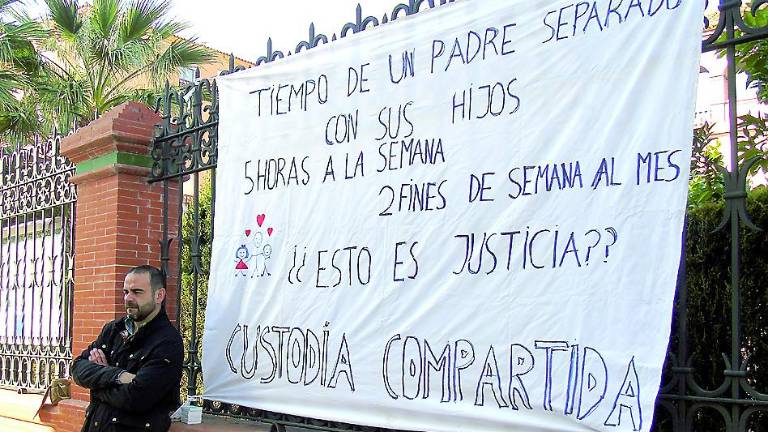 TIEMPO DE UN PADRE SEPARADO
CON SUS HIJOS
5 HORAS A LA SEMANA
2 FINES DE SEMANA AL MES
¿¿ESTO ES JUSTICIA??
CUSTODIA COMPARTIDA